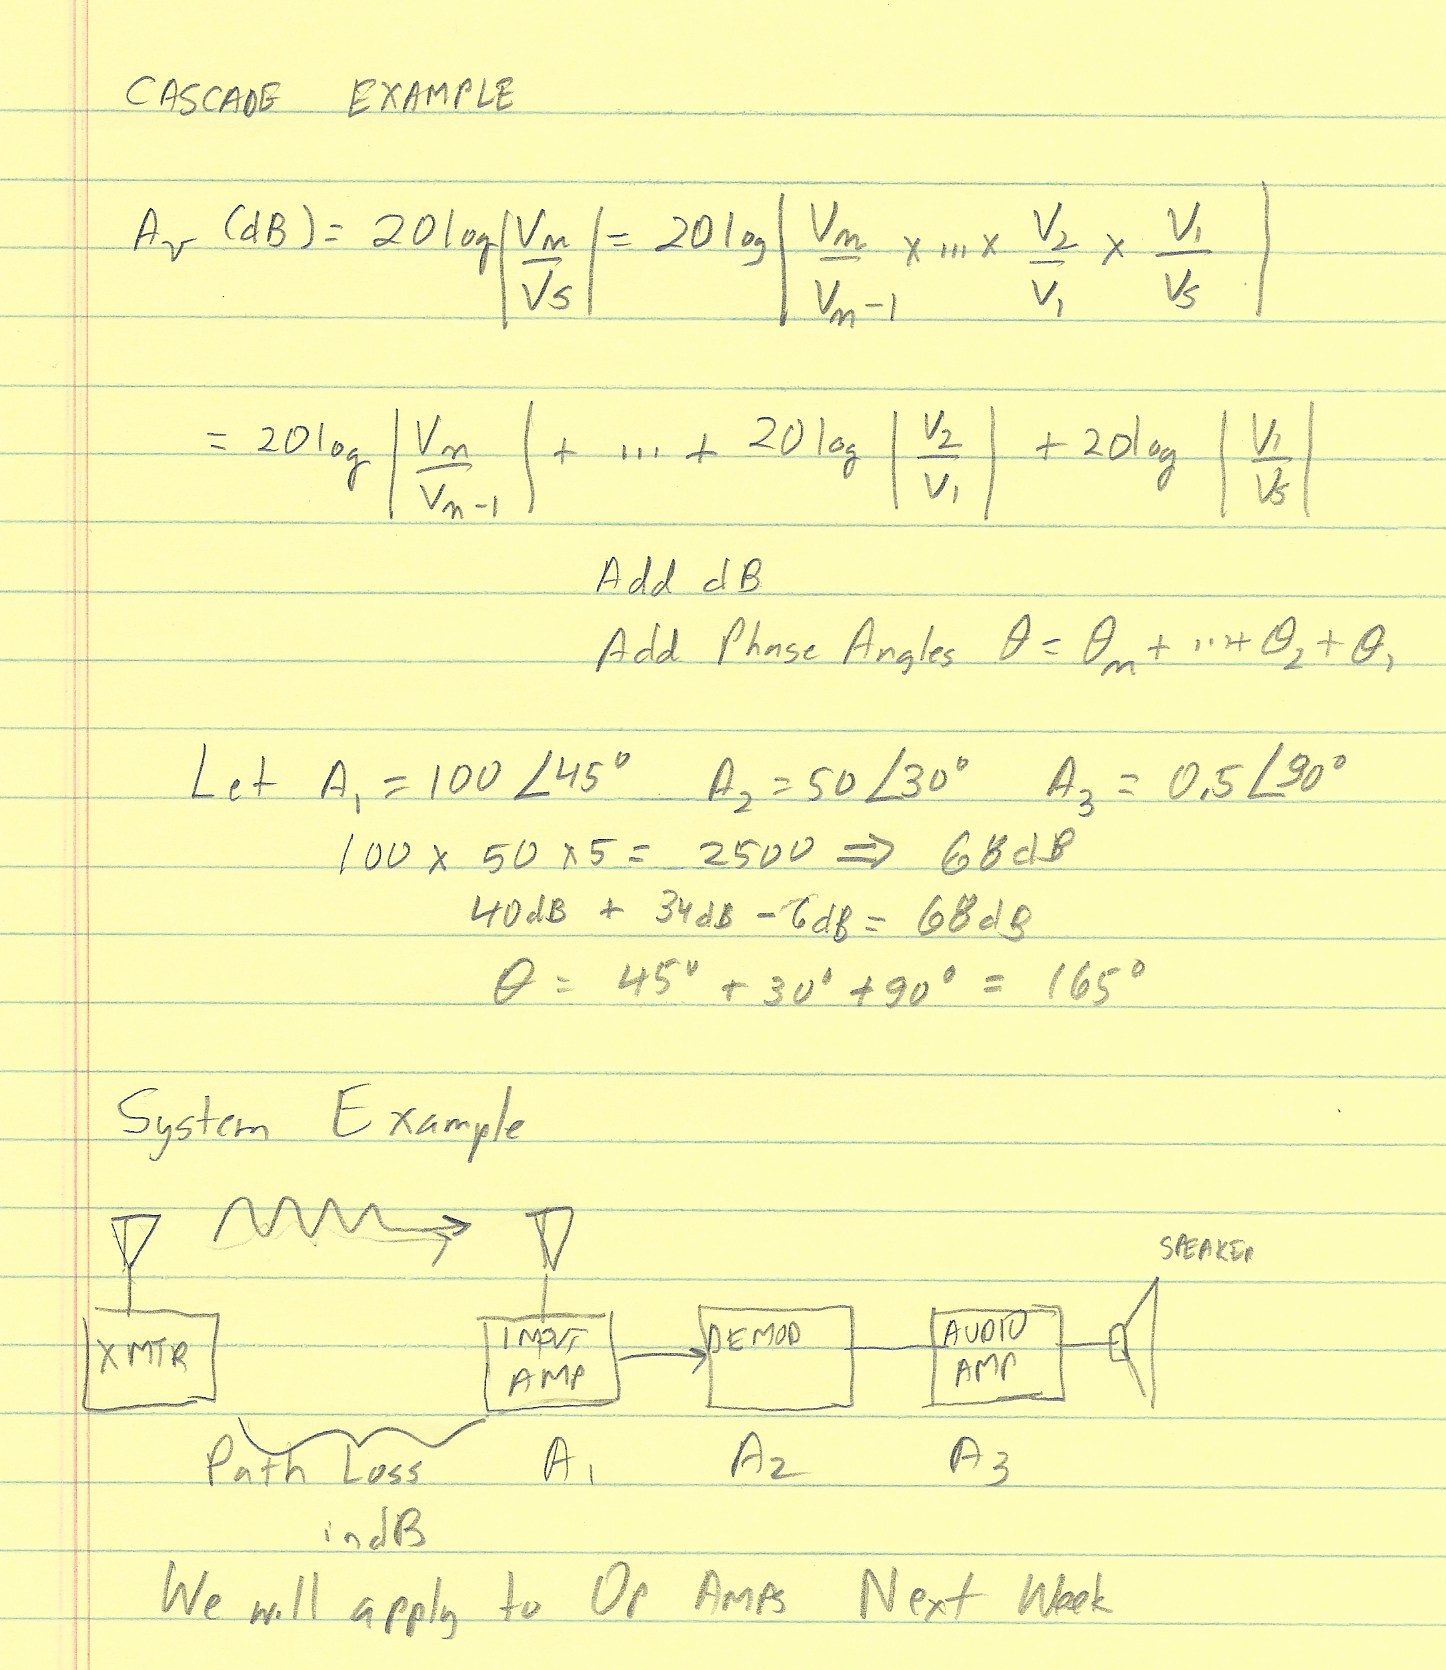 CASCADE EXAMPLE
Av (dB) = 20 log |Vn/Vs| = 20 log |Vn/Vn-1 x ... x V2/V1 x V1/Vs|
= 20 log |Vn/Vn-1| + ... + 20 log |V2/V1| + 20 log |V1/Vs|
Add dB
Add Phase Angles θ = θn + ... + θ2 + θ1
Let A1 = 100 ∠45° A2 = 50 ∠30° A3 = 0.5 ∠90°
100 x 50 x 5 = 2500 ⇒ 68 dB
40 dB + 34 dB - 6 dB = 68 dB
θ = 45° + 30° + 90° = 165°
System Example
SPEAKER
XMTR INPUT AMP DEMOD AUDIO AMP
Path Loss A1 A2 A3
in dB
We will apply to Op AMPs Next Week